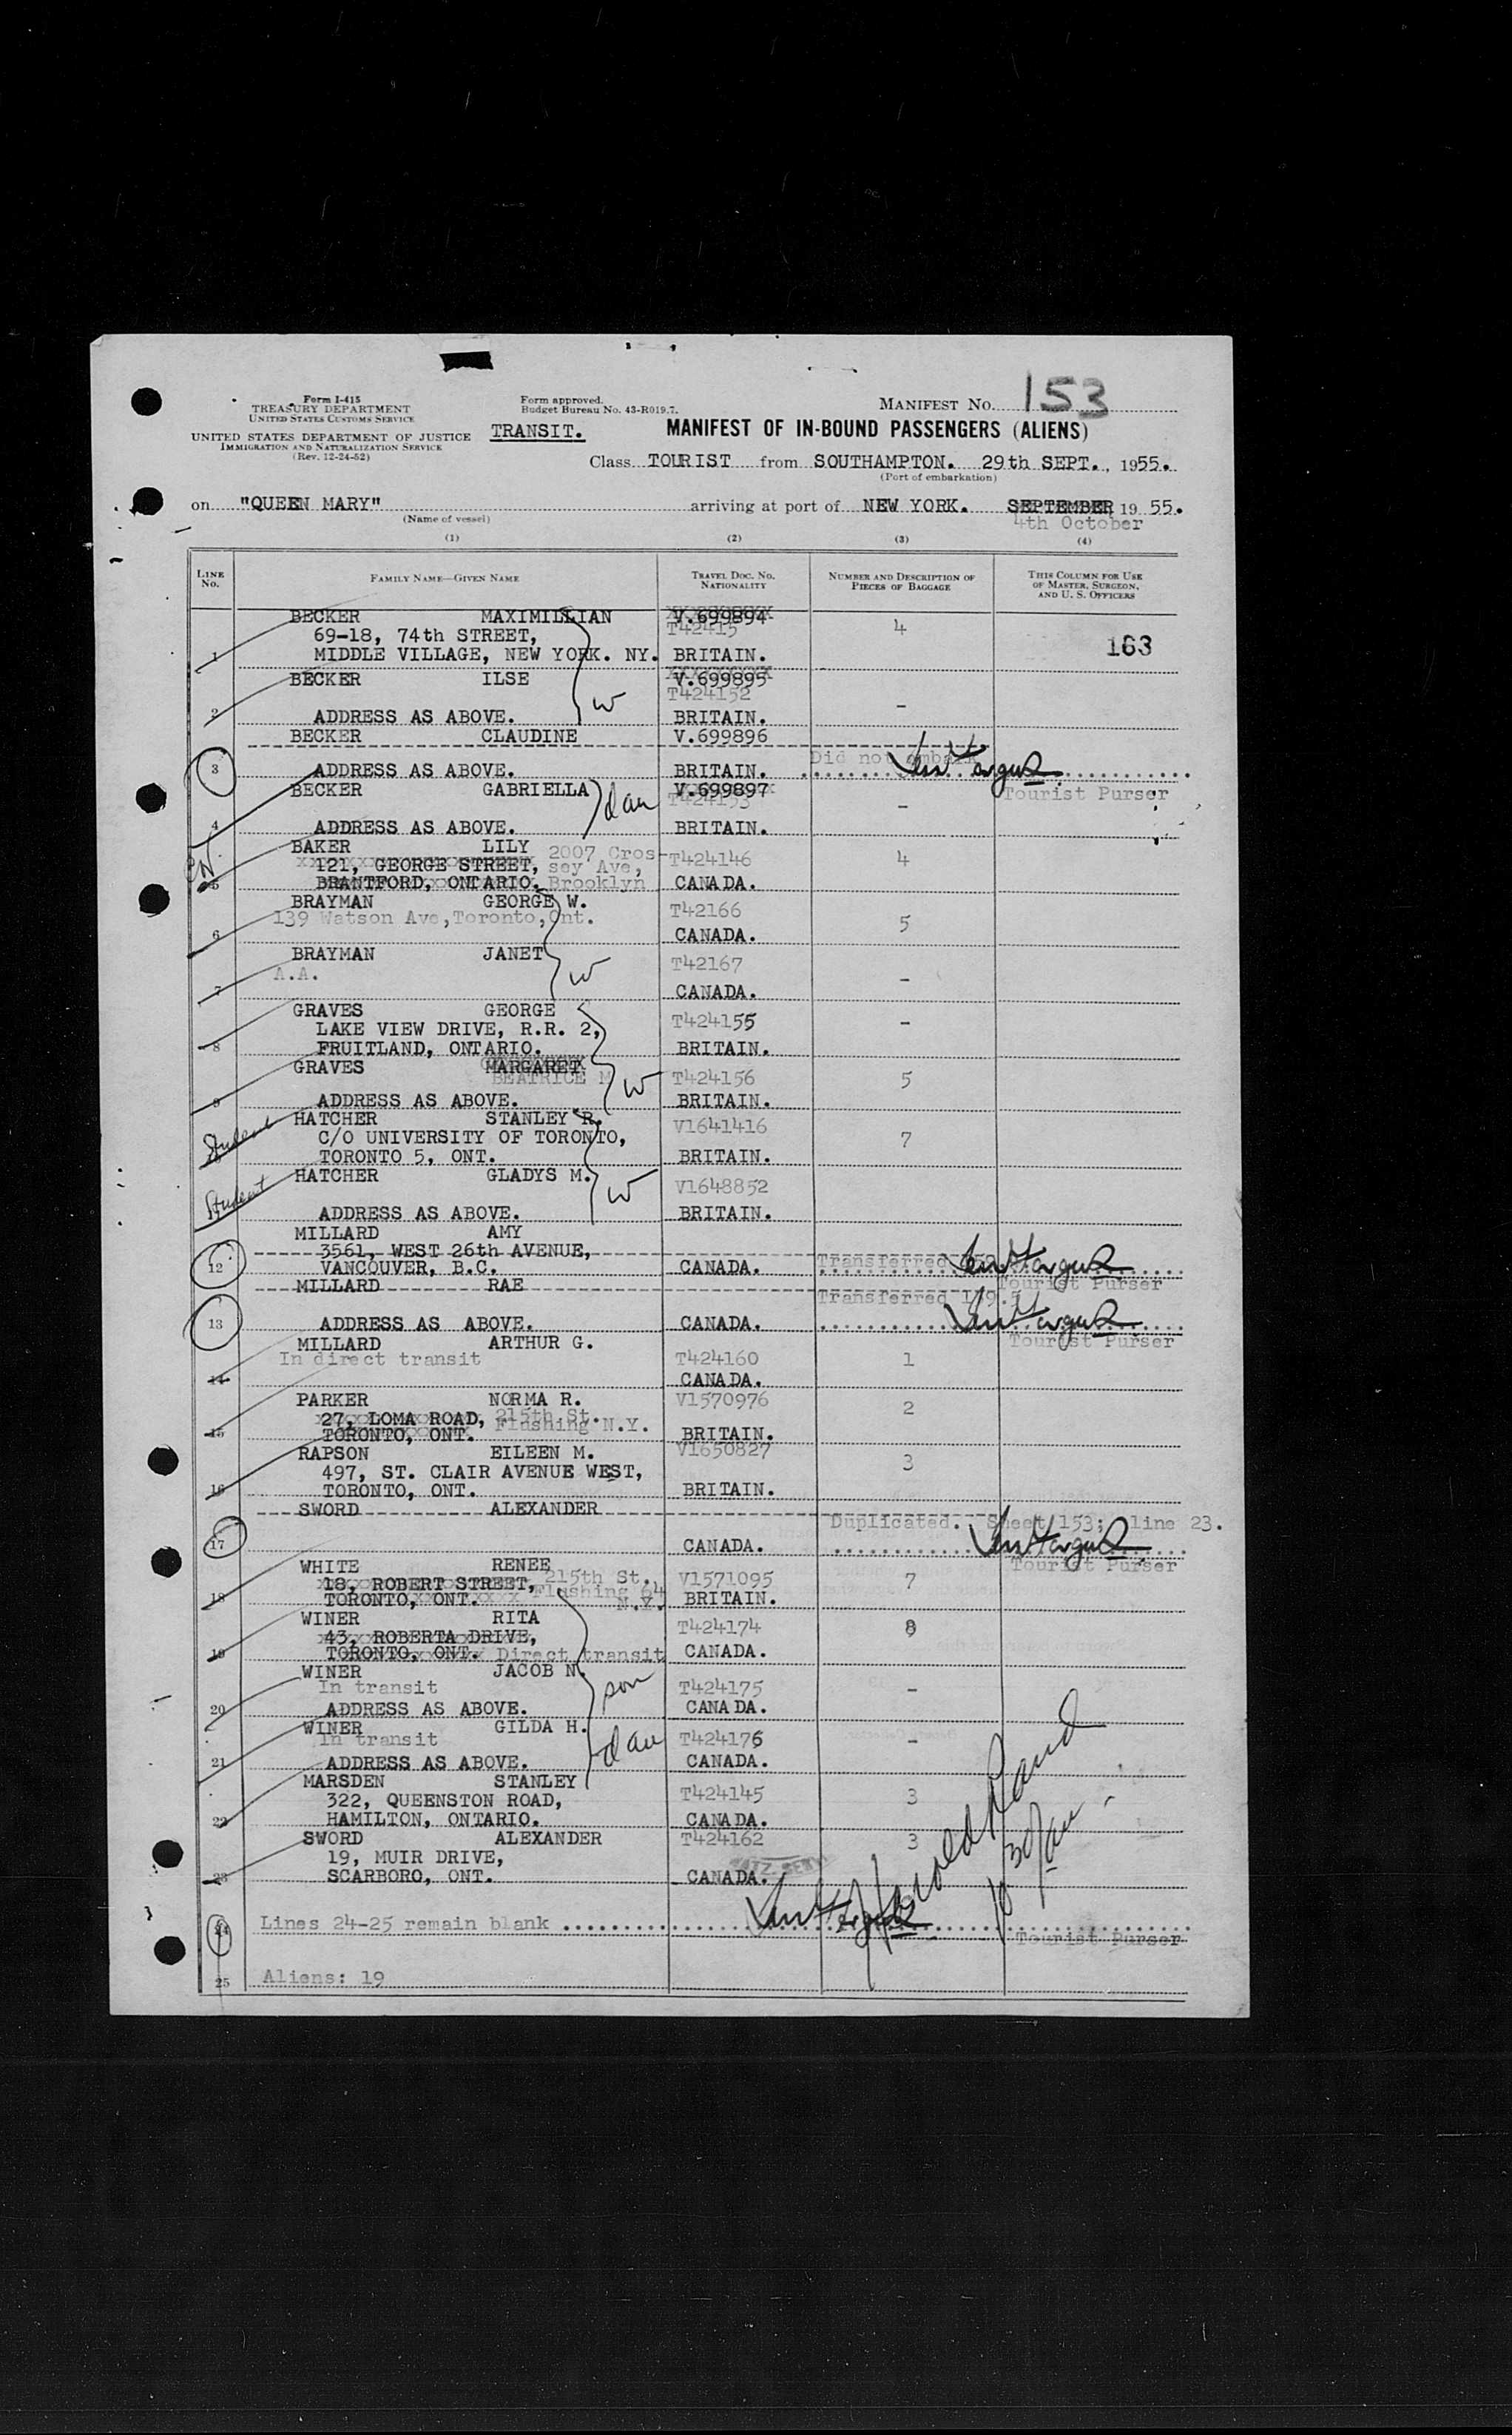 Form I-415
TREASURY DEPARTMENT
UNITED STATES CUSTOMS SERVICE
UNITED STATES DEPARTMENT OF JUSTICE
IMMIGRATION AND NATURALIZATION SERVICE
(Rev. 12-24-52)
Form approved.
Budget Bureau No. 43-R019.7.
TRANSIT.
MANIFEST NO. 153
MANIFEST OF IN-BOUND PASSENGERS (ALIENS)
Class TOURIST from SOUTHAMPTON. 29th SEPT., 1955.
(Port of embarkation)
on "QUEEN MARY" arriving at port of NEW YORK. SEPTEMBER 19 55.
(Name of vessel) 4th October
(1) (2) (3) (4)
LINE NO. FAMILY NAME—GIVEN NAME TRAVEL DOC. NO. NATIONALITY NUMBER AND DESCRIPTION OF PIECES OF BAGGAGE THIS COLUMN FOR USE OF MASTER, SURGEON, AND U. S. OFFICERS
BECKER MAXIMILLIAN V.699894
69-18, 74th STREET, T42415 4
1 MIDDLE VILLAGE, NEW YORK. NY. BRITAIN. 163
BECKER ILSE V.699895
w T424152 -
2 ADDRESS AS ABOVE. BRITAIN.
BECKER CLAUDINE V.699896
Did not embark
3 ADDRESS AS ABOVE. BRITAIN.
BECKER GABRIELLA V.699897 Tourist Purser
dau T424153 -
4 ADDRESS AS ABOVE. BRITAIN.
BAKER LILY 2007 Cros-
121, GEORGE STREET, sey Ave, T424146 4
5 BRANTFORD, ONTARIO. Brooklyn CANADA.
BRAYMAN GEORGE W. T42166
139 Watson Ave,Toronto,Ont. 5
6 CANADA.
BRAYMAN JANET T42167
A.A. w -
7 CANADA.
GRAVES GEORGE
LAKE VIEW DRIVE, R.R. 2, T424155 -
8 FRUITLAND, ONTARIO. BRITAIN.
GRAVES MARGARET
BEATRICE M w T424156 5
9 ADDRESS AS ABOVE. BRITAIN.
Student HATCHER STANLEY R. V1641416
C/O UNIVERSITY OF TORONTO, 7
TORONTO 5, ONT. BRITAIN.
Student HATCHER GLADYS M. w V1648852
ADDRESS AS ABOVE. BRITAIN.
MILLARD AMY
3561, WEST 26th AVENUE, Transferred
12 VANCOUVER, B.C. CANADA.
MILLARD RAE Tourist Purser
Transferred
13 ADDRESS AS ABOVE. CANADA.
MILLARD ARTHUR G. Tourist Purser
In direct transit T424160 1
14 CANADA.
PARKER NORMA R. V1570976
27, LOMA ROAD, 215th St. 2
15 TORONTO, ONT. Flushing N.Y. BRITAIN.
RAPSON EILEEN M. V1650827
497, ST. CLAIR AVENUE WEST, 3
16 TORONTO, ONT. BRITAIN.
SWORD ALEXANDER
Duplicated. Sheet 153; line 23.
17 CANADA.
WHITE RENEE Tourist Purser
18, ROBERT STREET, 215th St. V1571095 7
18 TORONTO, ONT. Flushing 64 N.Y. BRITAIN.
WINER RITA T424174 8
43, ROBERTA DRIVE,
19 TORONTO, ONT. Direct transit CANADA.
WINER JACOB N.
In transit son T424175 -
20 ADDRESS AS ABOVE. CANADA.
WINER GILDA H.
In transit dau T424176 -
21 ADDRESS AS ABOVE. CANADA.
MARSDEN STANLEY
322, QUEENSTON ROAD, T424145 3
22 HAMILTON, ONTARIO. CANADA.
SWORD ALEXANDER T424162 3
19, MUIR DRIVE,
23 SCARBORO, ONT. CANADA.
Lines 24-25 remain blank
Tourist Purser
25 Aliens: 19